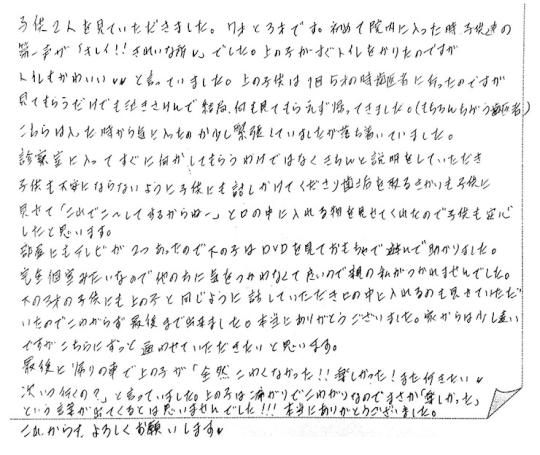 子供2人を見ていただきました。7才と3才です。初めて院内に入った時、子供達の
第一声が「キレイ!!きれいな所♡」でした。上の子がすぐトイレをかりたのですが
トイレもかわいい♡♡と言っていました。上の子供は1回5才の時歯医者に行ったのですが
見てもらうだけでも泣きさけんで結局、何も見てもらえず帰ってきました。(もちろんちがう歯医者)
こちらは入った時から気に入ったのか少し緊張していましたが落ち着いていました。
診察室に入ってすぐに何かしてもらうわけではなくきちんと説明をしていただき
子供も不安にならないように子供にも話しかけてくださり歯垢を取るきかいも子供に
見せて「これでこ〜してするからね〜」と口の中に入れる物を見せてくれたので子供も安心
したと思います。
部屋にもテレビが2つあったので下の子はDVDを見ておもちゃで遊んで助かりました。
完全個室みたいなので他の方に気をつかわなくて良いので親の私がつかれませんでした。
下の3才の子供にも上の子と同じように話していただき口の中に入れるのも見せていただ
いたのでこわがらず最後まで出来ました。本当にありがとうございました。家からは少し遠い
ですがこちらにずっと通わせていただきたいと思います。
最後に帰りの車で上の子が「全然こわくなかった!!楽しかった!また行きたい♡
次いつ行くの?」と言っていました。上の子は痛がりでこわがりなのでまさか「楽しかった」
という言葉が出てくるとは思いませんでした!!!本当にありがとうございました。
これからも、よろしくお願いします♡